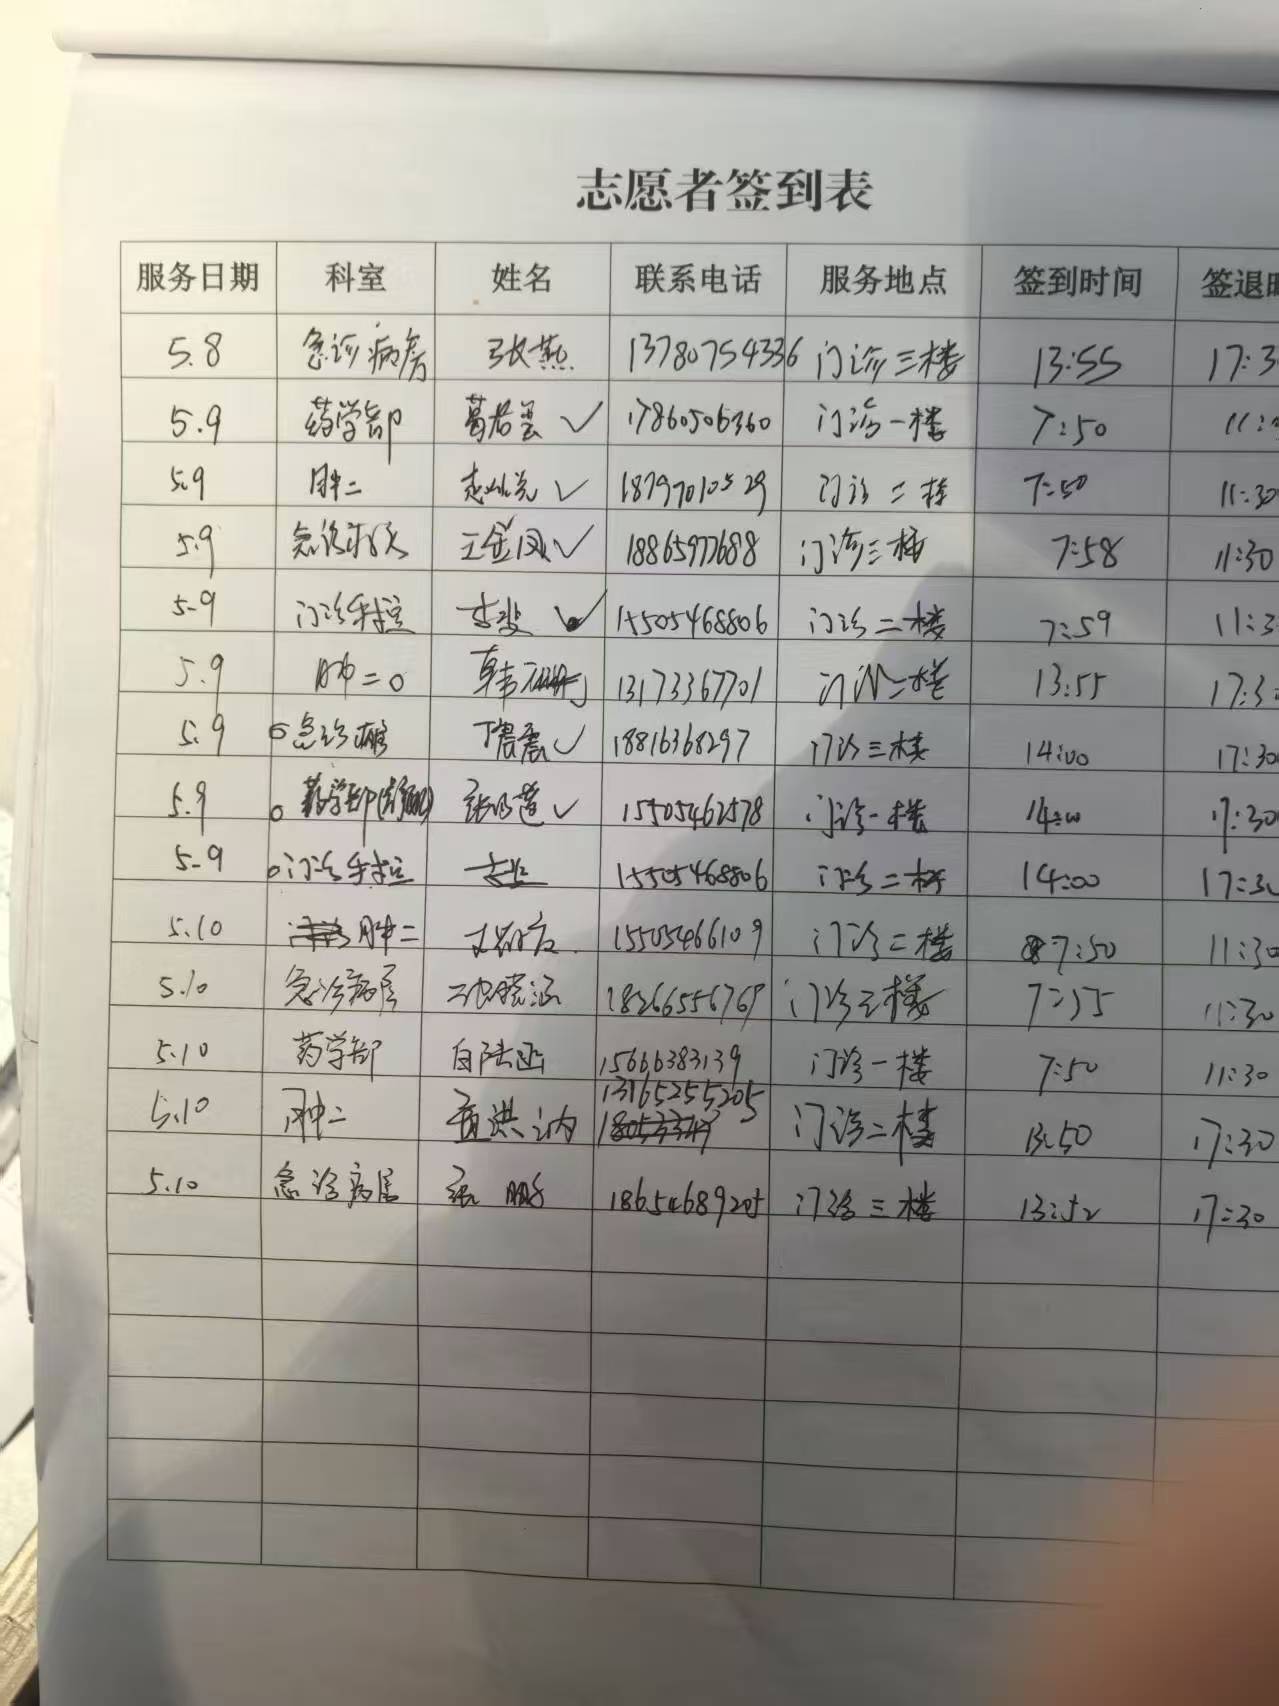 志愿者签到表
服务日期 科室 姓名 联系电话 服务地点 签到时间 签退时
5.8 急诊病房 张燕 13780754336 门诊三楼 13:55 17:3
5.9 药学部 葛君昙 ✓ 17860506360 门诊一楼 7:50 11:
5.9 肿二 ✓ 18797010529 门诊二楼 7:50 11:30
5.9 急诊 王金凤 ✓ 18865977688 门诊三楼 7:58 11:30
5-9 门诊 ✓ 15505468806 门诊二楼 7:59 11:3
5.9 肿二 韩 13173367701 门诊二楼 13:55 17:3
5.9 急诊 ✓ 18816368297 门诊三楼 14:00 17:30
5.9 药学部 ✓ 15505462578 门诊一楼 14:00 17:30
5-9 门诊 15505468806 门诊二楼 14:00 17:30
5.10 肿二 15505466109 门诊二楼 7:50 11:30
5.10 急诊病房 门诊三楼 11:30
5.10 药学部 15666383139 门诊一楼 7:50 11:30
5.10 肿二 13165255205 门诊二楼 13:50 17:30
5.10 急诊病房 张鹏 18654689205 门诊三楼 13:52 17:30